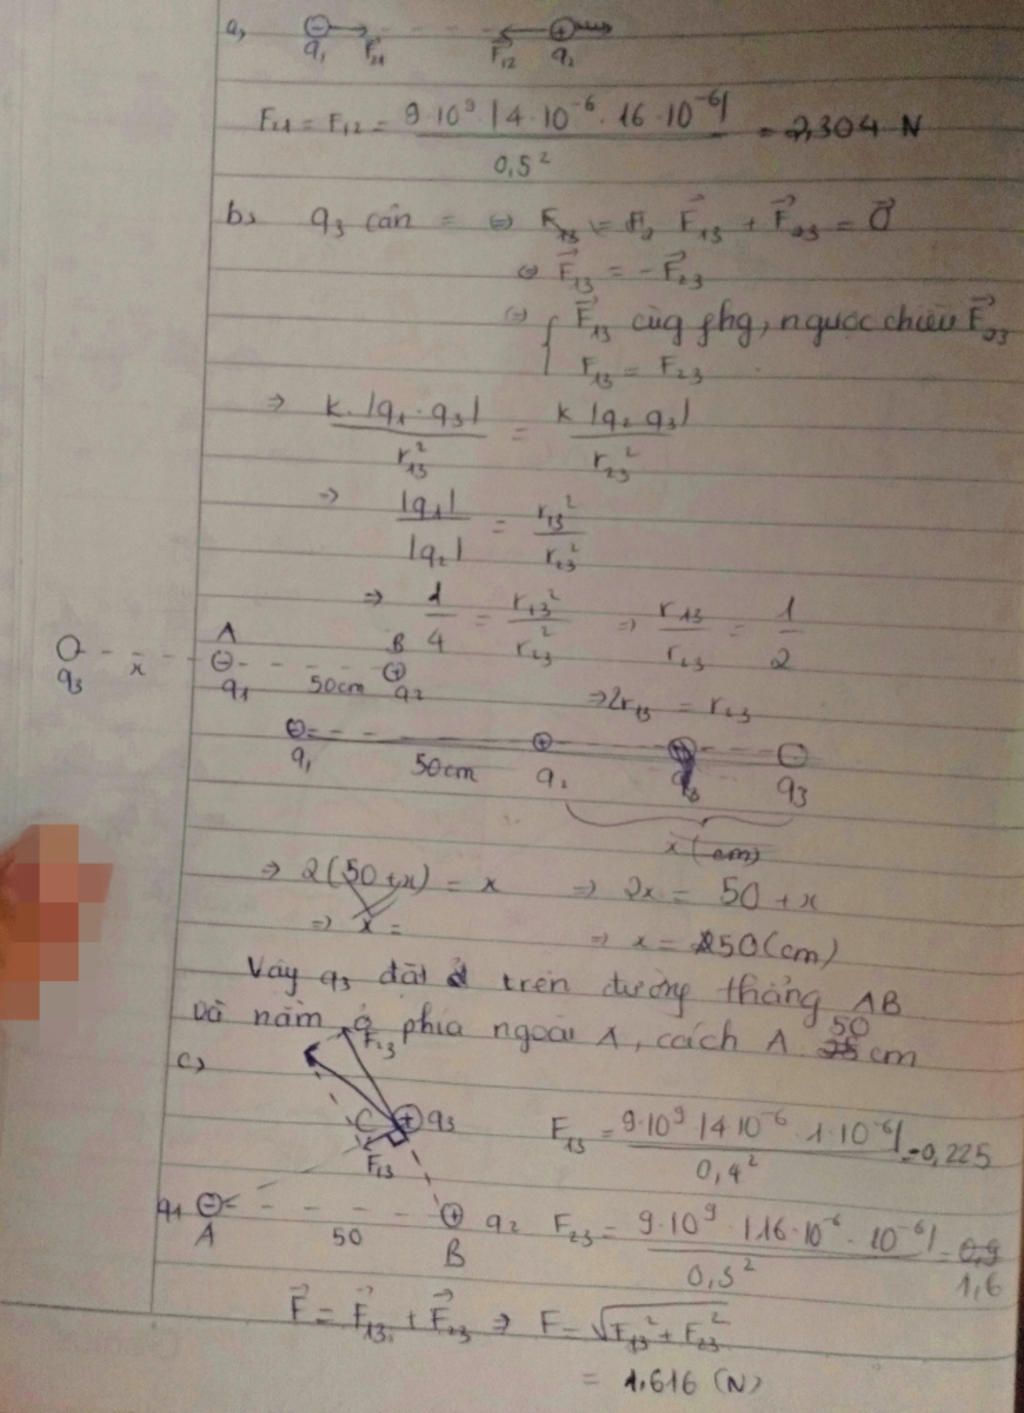 a,
q₁ F₂₁ F₁₂ q₂
F₂₁ = F₁₂ = 9·10⁹·|4·10⁻⁶·16·10⁻⁶| / 0,5² = 2,304 N
b, q₃ cân = ⇔ F₁₃ = F₂ F₁₃ + F₂₃ = 0
⇔ F₁₃ = -F₂₃
⇔ { F₁₃ cùg phg, ngược chiều F₂₃
F₁₃ = F₂₃
⇒ k·|q₁·q₃| / r₁₃² = k|q₂q₃| / r₂₃²
⇒ |q₁| / |q₂| = r₁₃² / r₂₃²
⇒ 1/4 = r₁₃² / r₂₃² ⇒ r₁₃ / r₂₃ = 1/2
A B
q₃ x q₁ 50cm q₂
⇒ 2r₁₃ = r₂₃
q₁ 50cm q₂ q₃ q₃
x (cm)
⇒ 2(50+x) = x ⇒ 2x = 50 + x
⇒ x = ⇒ x = 50 (cm)
Vậy q₃ đặt ở trên đường thẳng AB
và nằm ở phía ngoài A, cách A 50 cm
c, F₂₃
C q₃ F₁₃ = 9·10⁹|4·10⁻⁶·1·10⁻⁶| / 0,4² = 0,225
F₁₃
q₁ A 50 B q₂ F₂₃ = 9·10⁹·|16·10⁻⁶·10⁻⁶| / 0,3² = 0,9 1,6
F = F₁₃ + F₂₃ ⇒ F = √(F₁₃² + F₂₃²)
= 1,616 (N)